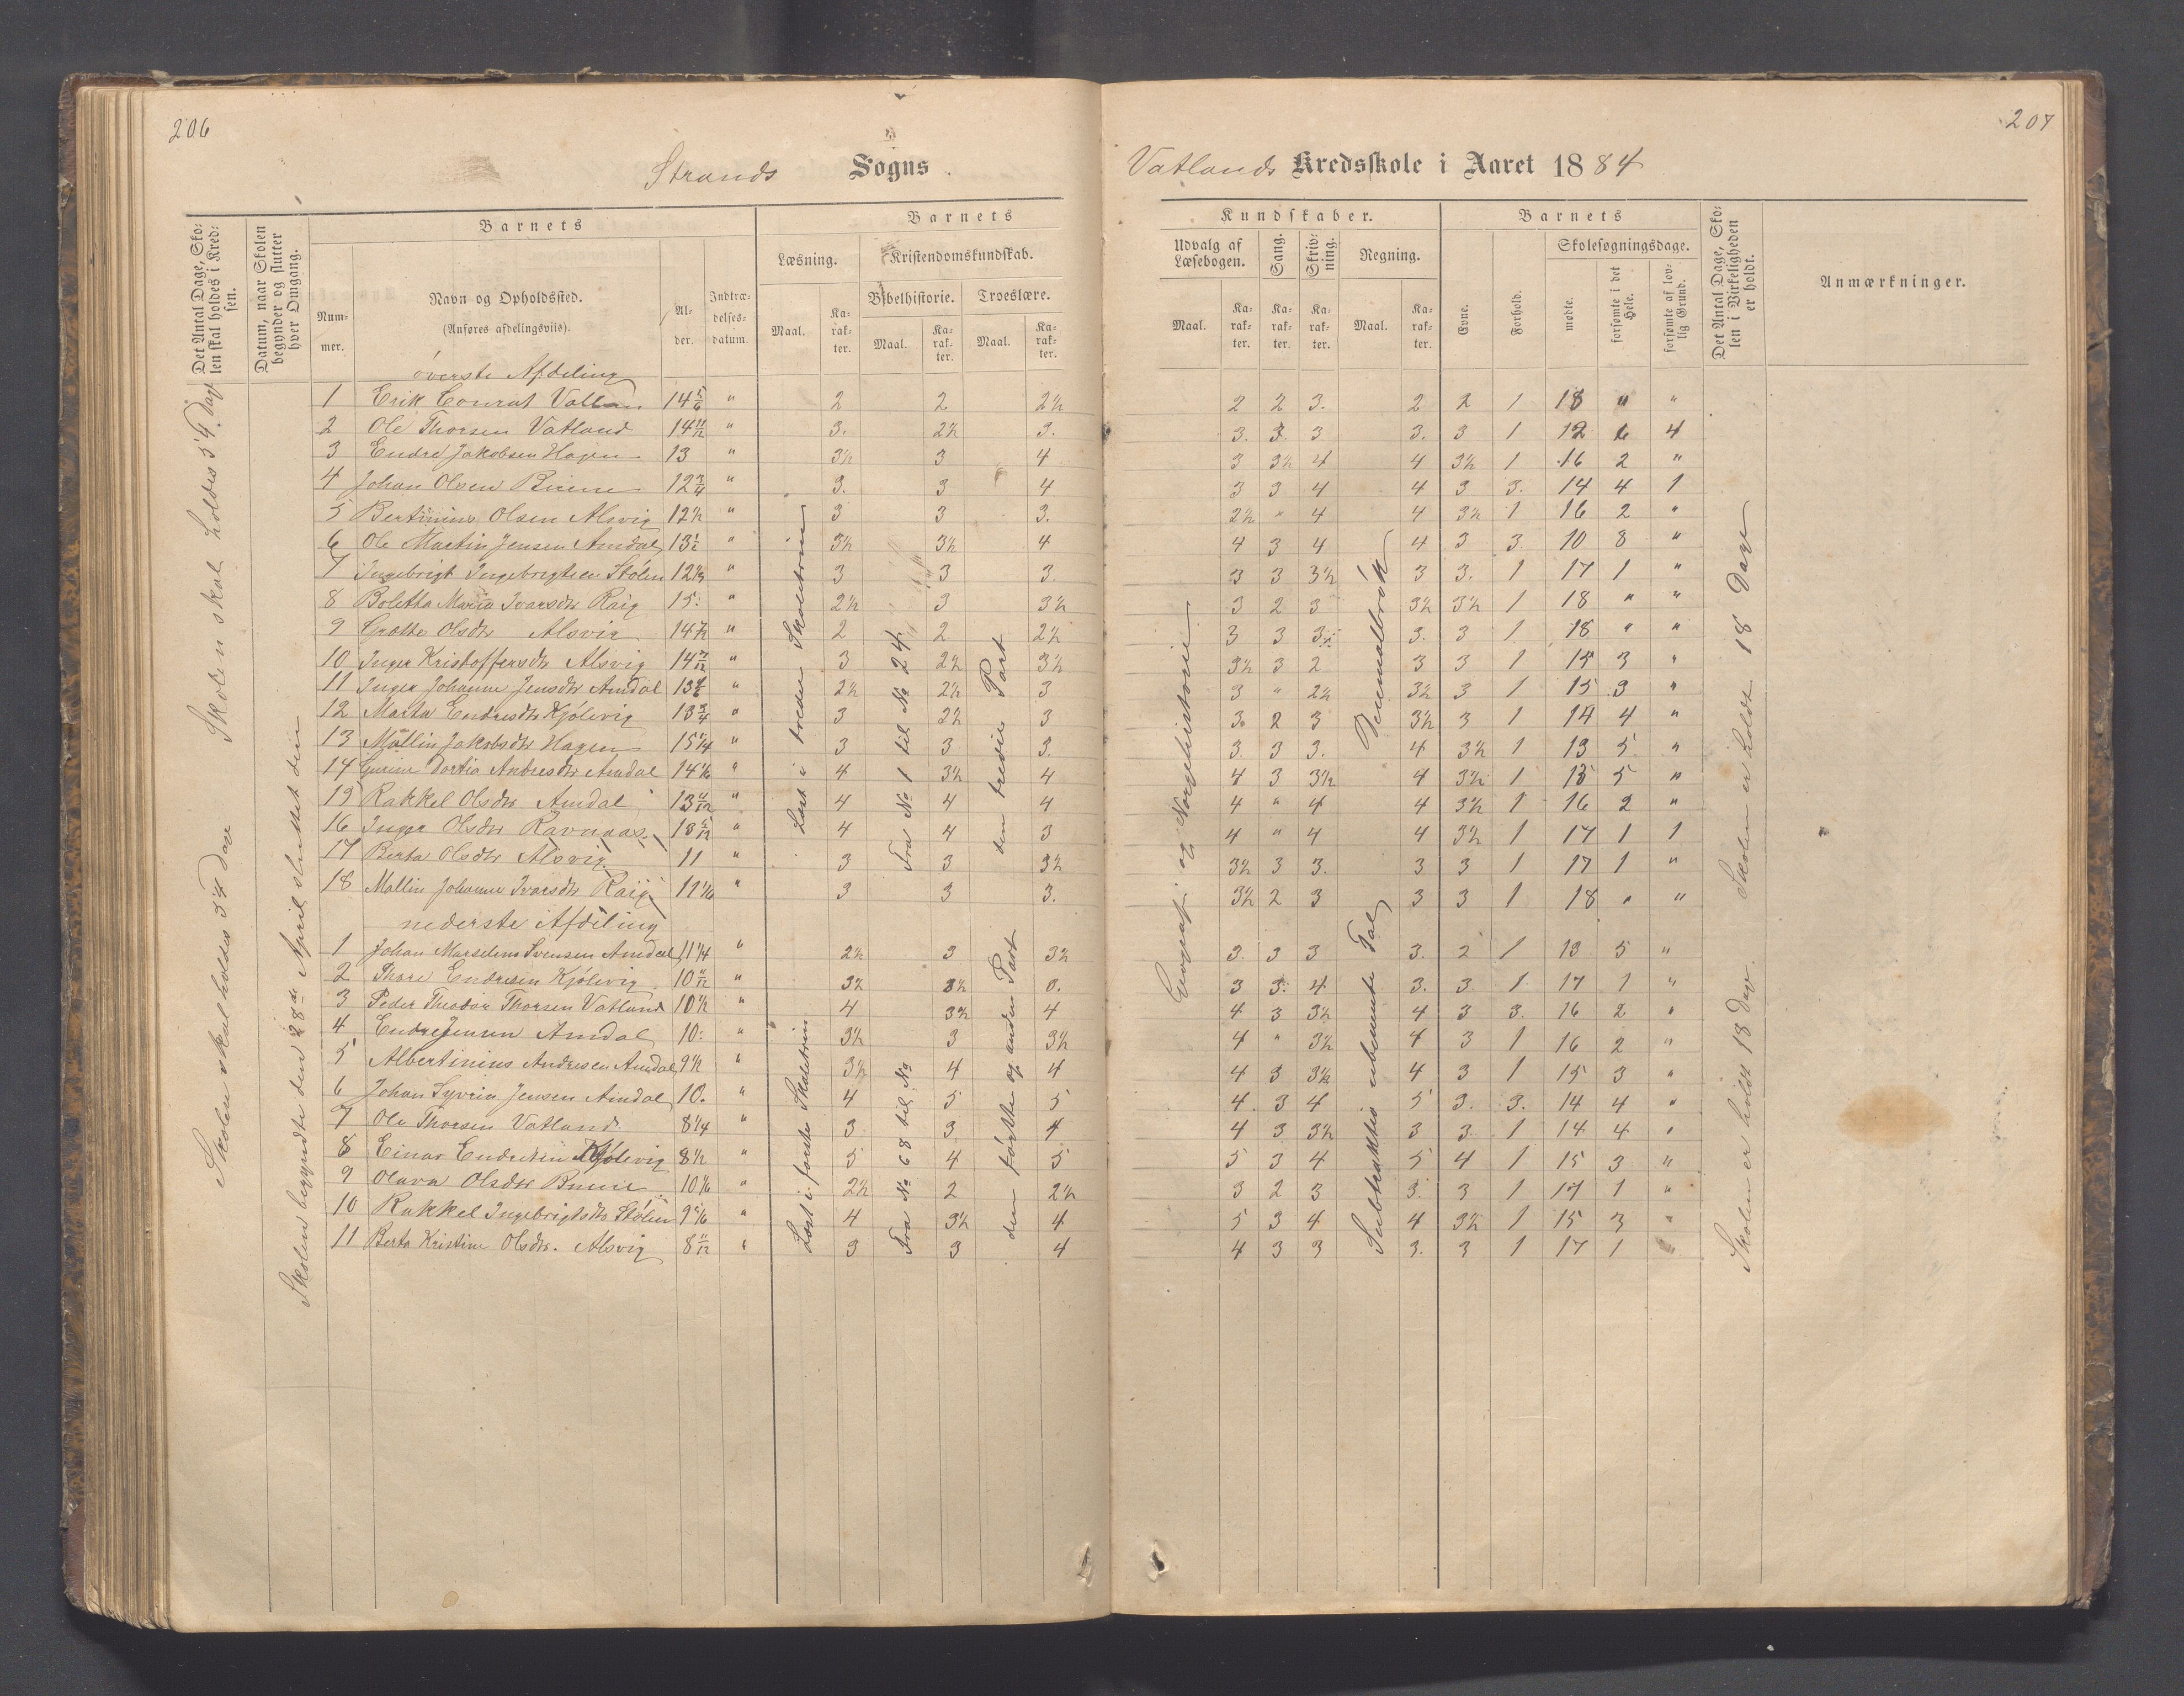 206
207
Strands Sogns.
Vatlands Kredsskole i Aaret 1884
Det Antal Dage, Skolen skal holdes i Kredsen.
Datum, naar Skolen begynder og slutter hver Omgang.
Barnets
Nummer.
Navn og Opholdssted.
(Anføres afdelingsviis).
Alder.
Indtrædelsesdatum.
Barnets
Læsning.
Kristendomskundskab.
Bibelhistorie.
Troeslære.
Maal.
Karakter.
Maal.
Karakter.
Maal.
Karakter.
Kundskaber.
Udvalg af Læsebogen.
Sang.
Skrivning.
Regning.
Maal.
Karakter.
Karakter.
Karakter.
Maal.
Karakter.
Barnets
Evne.
Forhold.
Skolesøgningsdage.
mødte.
forsømte i det Hele.
forsømte af lovlig Grund.
Det Antal Dage, Skolen i Virkeligheden er holdt.
Anmærkninger.
Skolen skal holdes 54 Dage
Skolen skal holdes 54 Dage
Skolen begyndte den 28de April sluttet den
øverste Afdeling
1 Erik Conrat Vatlan 14 5/6 " 2 2 2½ 2 2 3. 2 2 1 18 " "
2 Ole Thorsen Vatland 14 11/12 " 3. 2½ 3. 3. 3. 3 3. 3 1 12 6 4
3 Endre Jakobsen Hagen 13 " 3½ 3 4 3 3½ 4 4 3½ 1 16 2 "
4 Johan Olsen Buene 12 3/4 " 3. 3 4 3 3 4 4 3 3. 14 4 1
5 Bertinius Olsen Alsvig 12½ " 3 3 3. 2½ " 4 4 3½ 1 16 2 "
6 Ole Martin Jensen Amdal 13½ " 3½ 3½ 4 4 3 4 4 3 3 10 8 "
7 Ingebrigt Ingebrigtsen Stölen 12⅓ " 3 3 3. 3 3 3½ 3 3. 1 17 1 "
8 Boletha Maria Ivarsdtr Raig 15. " 2½ 3 3½ 3 2 3 3½ 3½ 1 18 " "
9 Grethe Olsdtr Alsvig 14½ " 2 2 2½ 3 3 3. 3. 3 1 18 " "
10 Inger Kristoffersdtr Alsvig 14 7/12 " 3 2½ 3½ 3½ 3 2 3 3 1 15 3 "
11 Inger Johanne Jensdtr Amdal 13 " 2½ 2½ 3 3 " 2½ 3½ 3 1 15 3 "
12 Marta Endresdtr Kjölevig 13 3/4 " 3 2½ 3 3. 2 3 3½ 3 1 14 4 "
13 Mallin Jakobsdtr Hagen 15¼ " 3 3 3. 3. 3 3. 4 3½ 1 13 5 "
14 Gurine Dortia Andresdtr Amdal 14⅙ " 4 3½ 4 4 3 3½ 4 3½ 1 13 5 "
15 Rakkel Olsdtr Amdal 13 11/12 " 4 4 4 4 " 4 4 3½ 1 16 2 "
16 Inger Olsdtr Ravnaas 13 5/12 " 4 4 3 4 " 4 4 3½ 1 17 1 1
17 Berta Olsdtr Alsvig 11 " 3 3 3½ 3½ 3 3. 3 3 1 17 1 "
18 Mallin Johanne Ivarsdtr Raig 11 " 3 3 3. 3½ 2 3 3 3 1 18 " "
Læst i tredie Skoletrin
Fra No 1 til No 24
den tredie Part
Geografi og Norgeshistorie
Decimalbrök
Skolen er holdt 18 Dage
nederste Afdeling
1 Johan Marselius Svensen Amdal 11¼ " 2½ 3 3½ 3. 3 3 3. 2 1 13 5 "
2 Thore Endresen Kjölevig 10 11/12 " 3½ 3½ 3. 3 3. 4 3. 3. 1 17 1 "
3 Peder Theodor Thorsen Vatland 10½ " 4 3½ 4 4 3 3½ 4 3 3. 16 2 "
4 Endre Jensen Amdal 10. " 3½ 3 3½ 4 " 3½ 4 3 1 16 2 "
5 Albertinius Andresen Amdal 9½ " 3½ 4 4 4 3 3½ 4 3 1 15 3 "
6 Johan Syverin Jensen Amdal 10. " 4 5 5 4. 3 4 5 3. 3. 14 4 "
7 Ole Thorsen Vatland 8¼ " 3 3. 4. 4 3 3½ 3 3. 1 14 4 "
8 Einar Endresen Kjölevig 8½ " 5 4 5 5 3 4 5 4 1 15 3 "
9 Olava Olsdtr Buene 10⅙ " 2½ 2 2½ 3 2 3 3. 3 1 17 1 "
10 Rakkel Ingebrigtsdtr Stölen 9⅚ " 4 3½ 4 5 3 4 4 3½ 1 15 3 "
11 Berta Kristine Olsdtr. Alsvig 8 11/12 " 3 3 4 4 3 3 3. 3 1 17 1 "
Læst i første Skoletrin
Fra No 68 til No
den første og anden Part
Subtraktion ubenævnte Tal
Skolen er holdt 18 Dage.